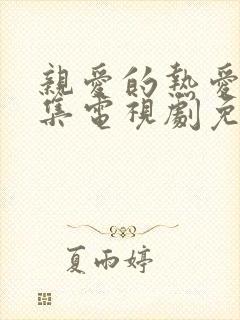 親愛的熱愛
集電視劇免
夏雨婷